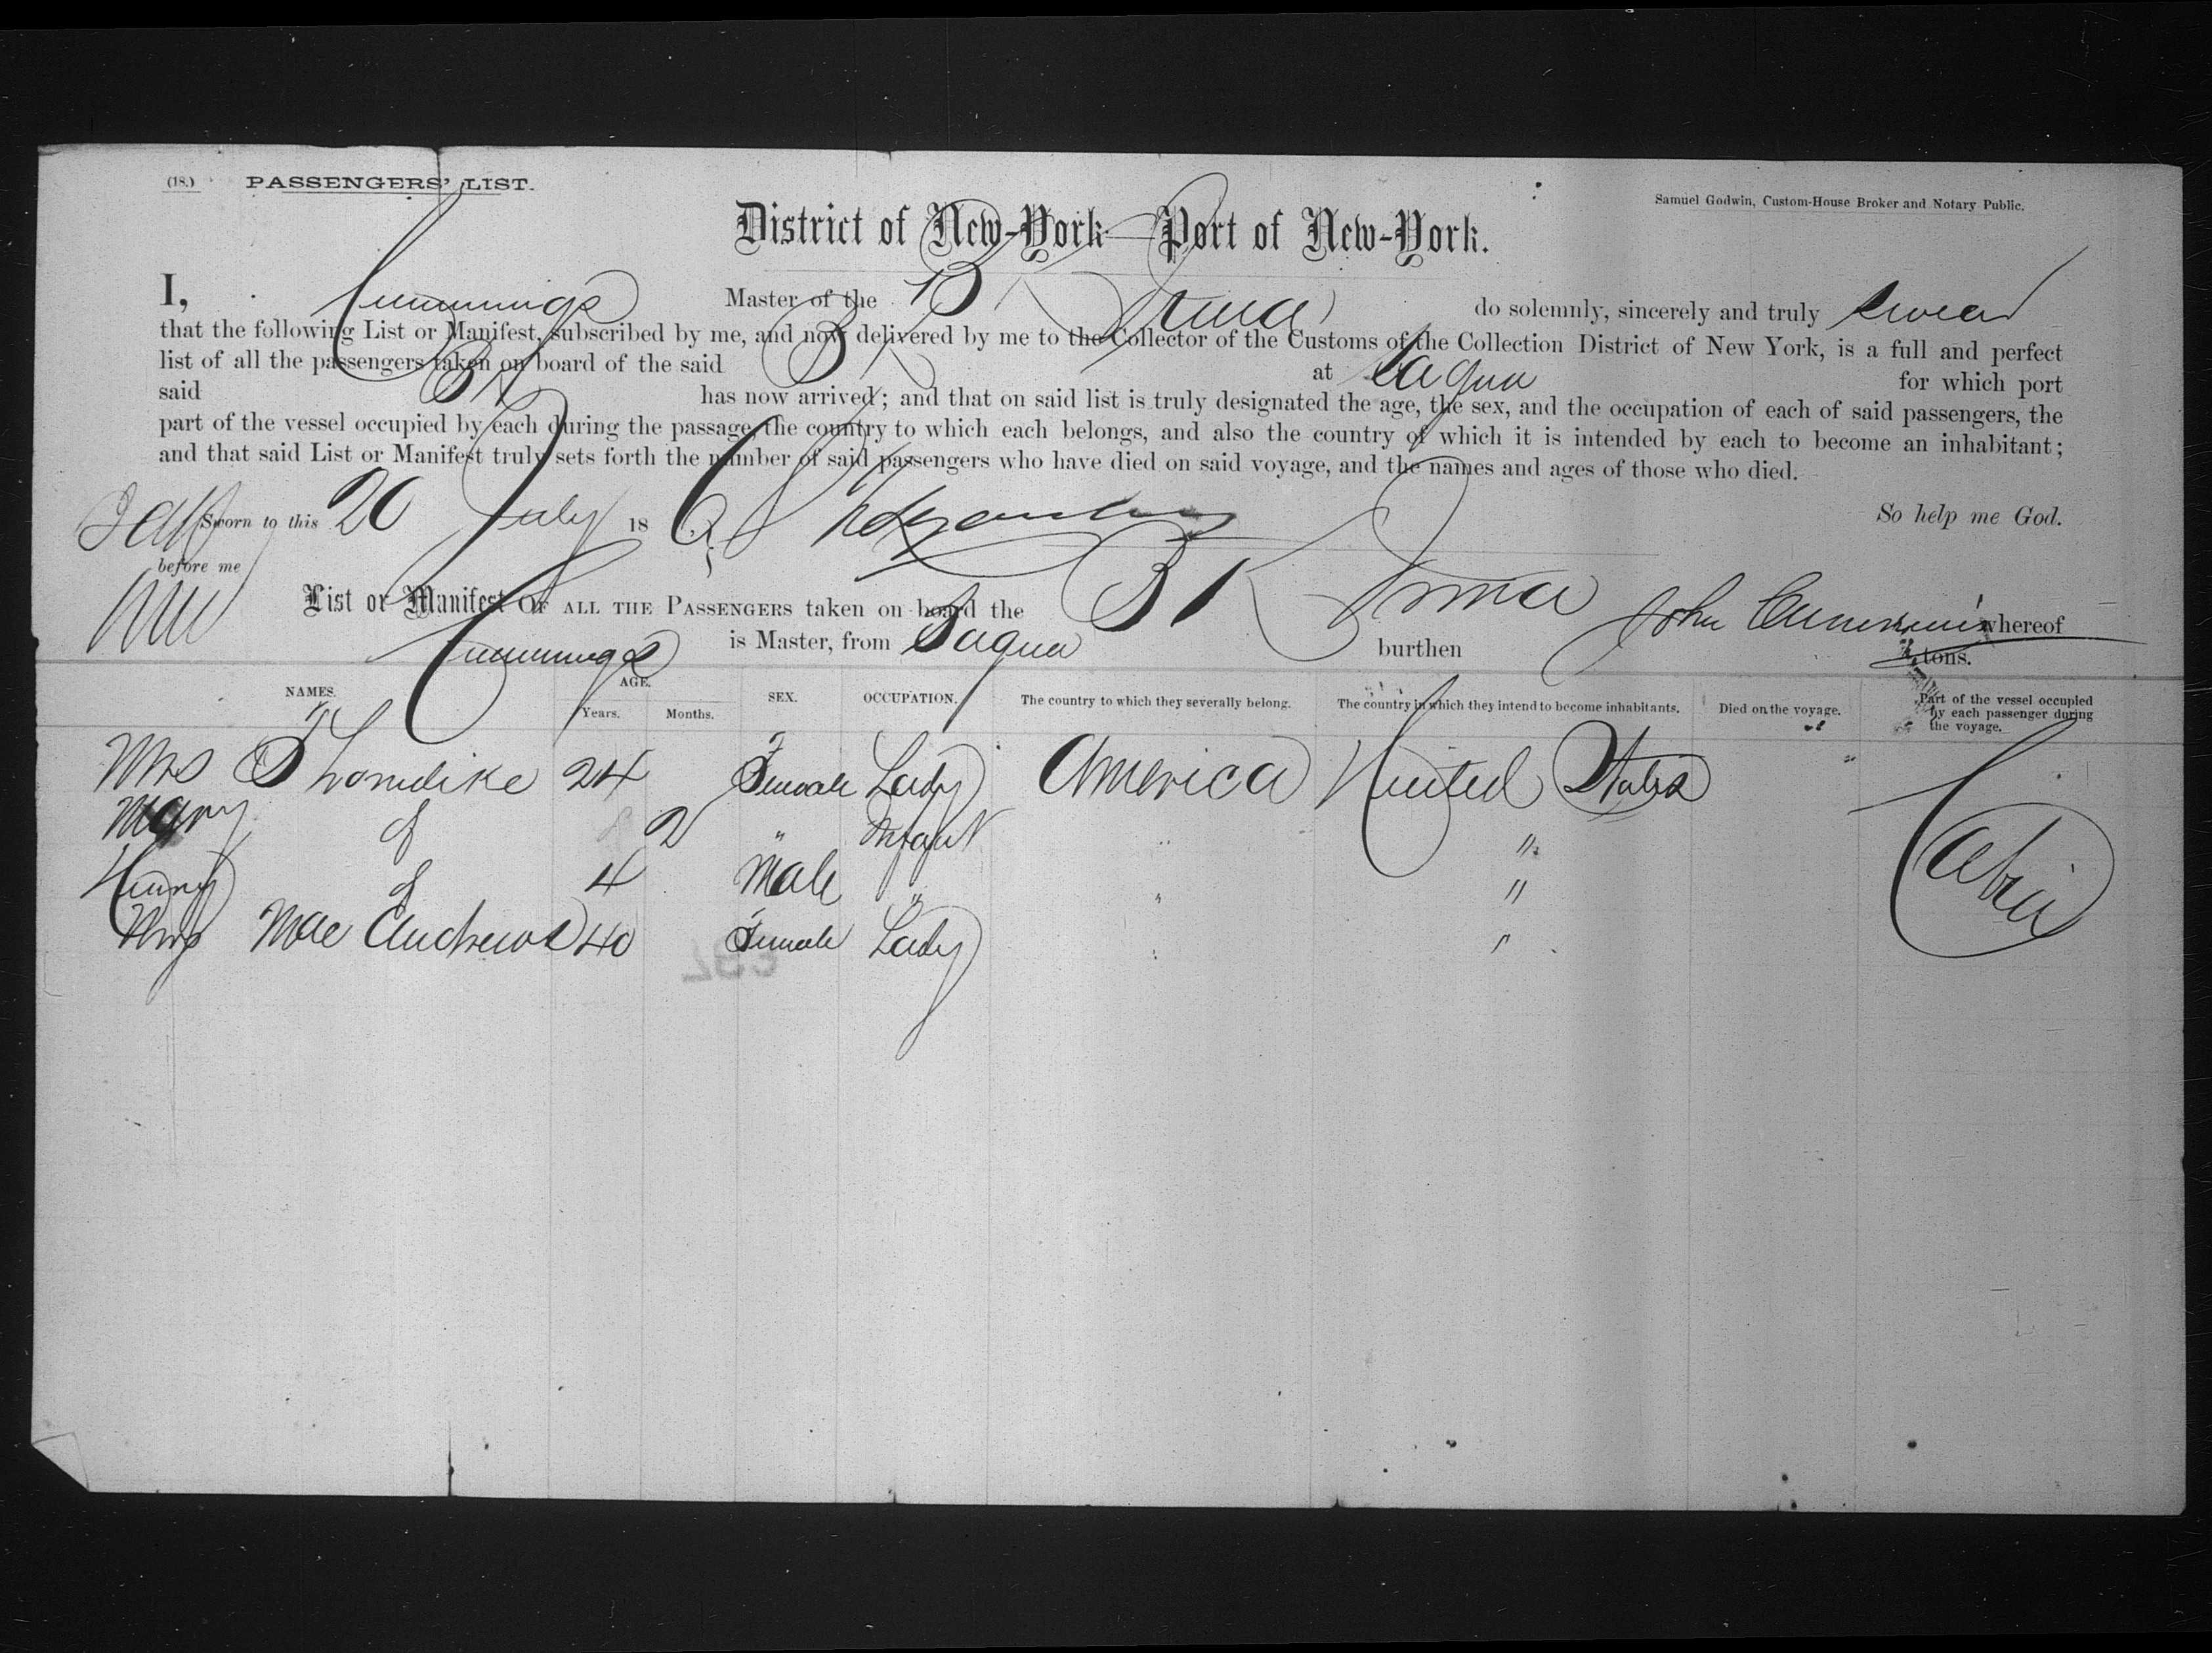 (18.) PASSENGERS' LIST.
Samuel Godwin, Custom-House Broker and Notary Public.
District of New-York—Port of New-York.
I, Cummings Master of the Bk do solemnly, sincerely and truly swear
that the following List or Manifest, subscribed by me, and now delivered by me to the Collector of the Customs of the Collection District of New York, is a full and perfect
list of all the passengers taken on board of the said Bk at Sagua for which port
said Bk has now arrived; and that on said list is truly designated the age, the sex, and the occupation of each of said passengers, the
part of the vessel occupied by each during the passage, the country to which each belongs, and also the country of which it is intended by each to become an inhabitant;
and that said List or Manifest truly sets forth the number of said passengers who have died on said voyage, and the names and ages of those who died.
So help me God.
Sworn to this 20 July 186
before me
List or Manifest OF ALL THE PASSENGERS taken on board the Bk John Cummings whereof
Cummings is Master, from Sagua burthen tons.
NAMES. AGE. Years. Months. SEX. OCCUPATION. The country to which they severally belong. The country in which they intend to become inhabitants. Died on the voyage. Part of the vessel occupied by each passenger during the voyage.
Mrs Thorndike 24 Female Lady America United States Cabin
Mary d 2 " Infant " "
Henry d 4 Male " " "
Mrs Mac Andrews 40 Female Lady " "